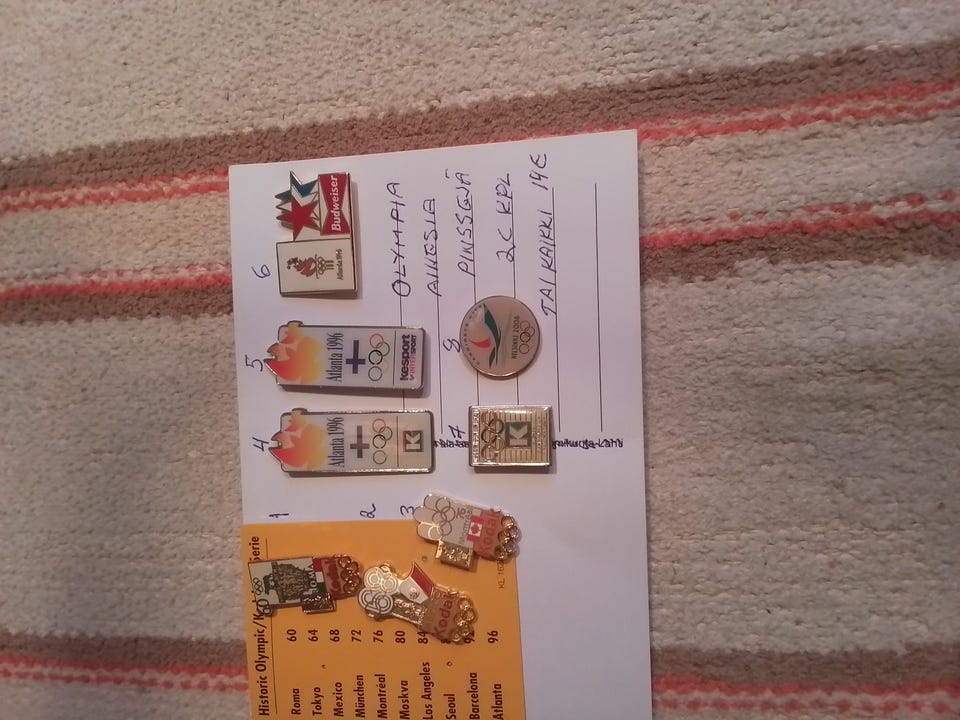 6
Atlanta 1996
Budweiser
5
Atlanta 1996
Kesport
INTERSPORT
4
Atlanta 1996
K
OLYMPIA
AIHESIA
PINSSEJÄ
2€ KPL
TAI KAIKKI 14€
8
HELSINKI 2006
7
K
1
2
3
60
ROMA
Kodak
68
Kodak
76
Montréal
Kodak
Historic Olympic/
Serie
Roma 60
Tokyo 64
Mexico 68
München 72
Montréal 76
Moskva 80
Los Angeles 84
Seoul
Barcelona 92
Atlanta 96